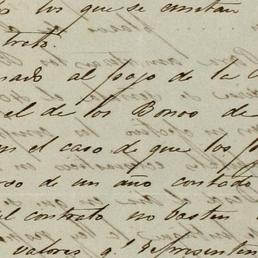 los que se emitan
trato.
nado al pago de la
el de los Bonos de
en el caso de que los
so de un año contado
el contrato no basten
valores q.e representen